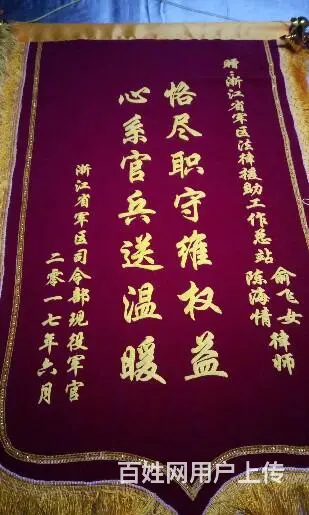 赠:浙江省军区法律援助工作总站
俞飞女
陈海情
律师
恪尽职守维权益
心系官兵送温暖
浙江省军区司令部现役军官
二零一七年六月
百姓网用户上传